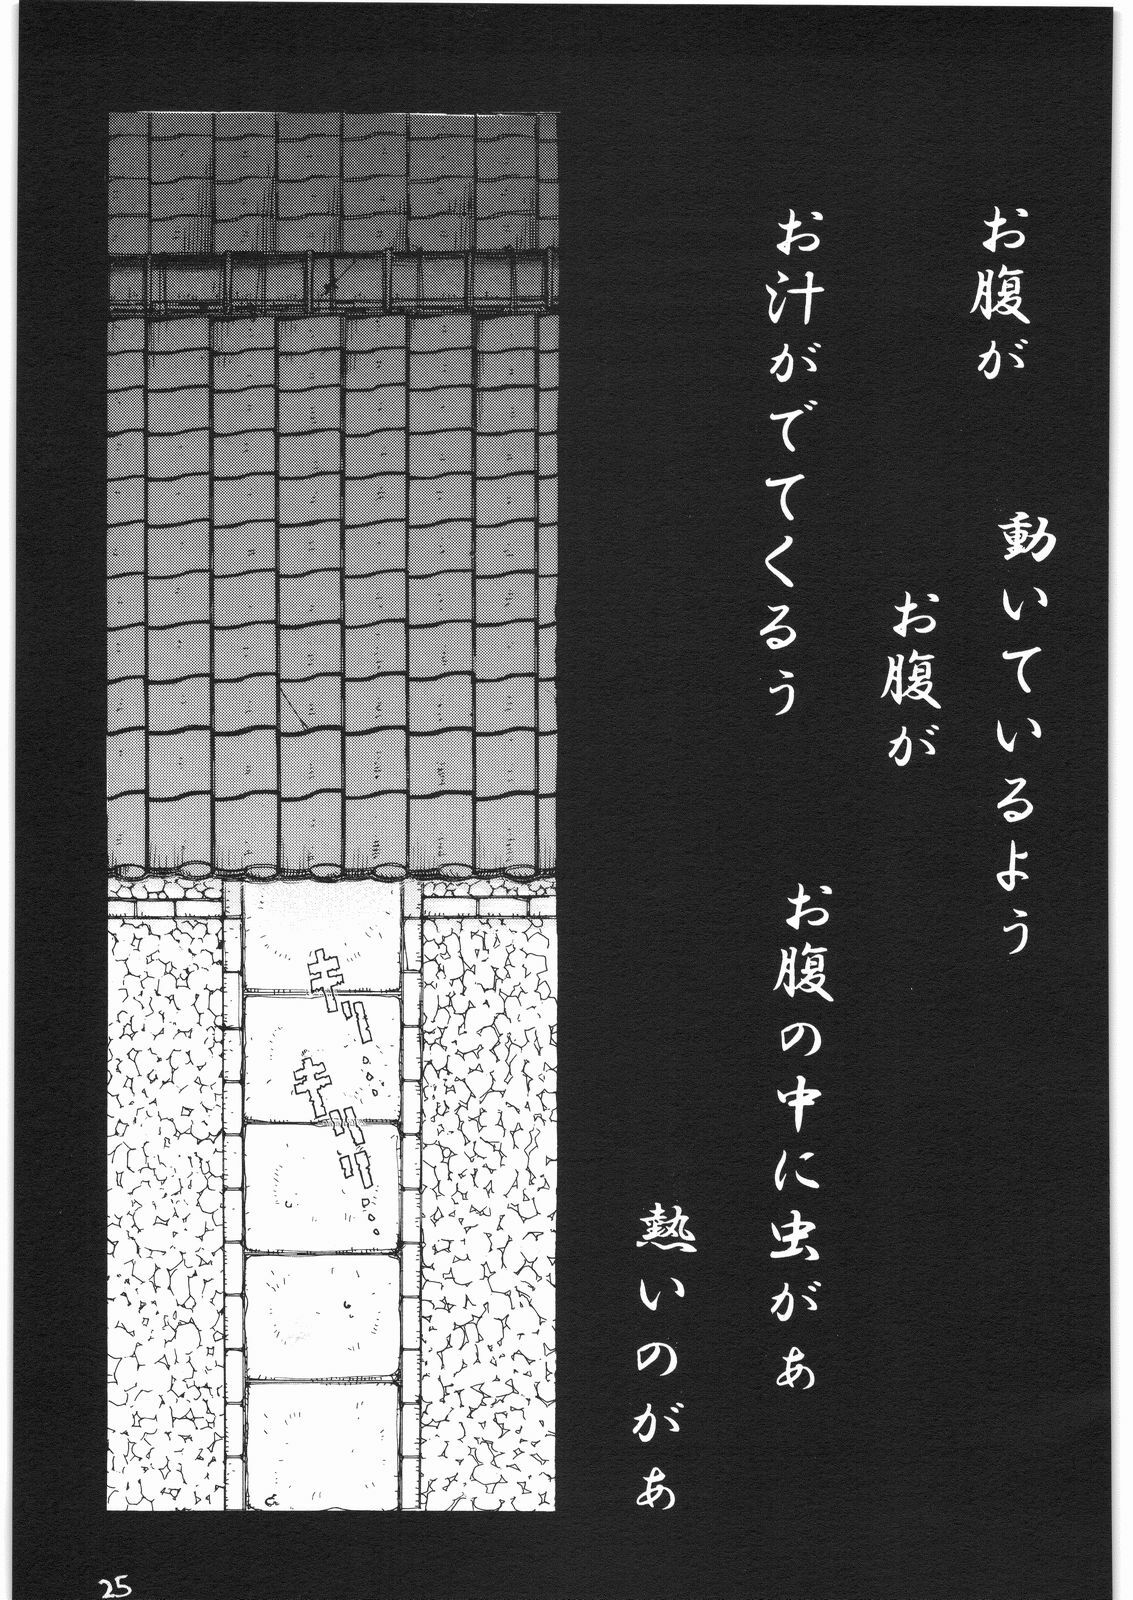 お腹が
動いているよう
お腹が
お汁がでてくるぅ
お腹の中に虫がぁ
熱いのがぁ
キリ...
キリリ...
25